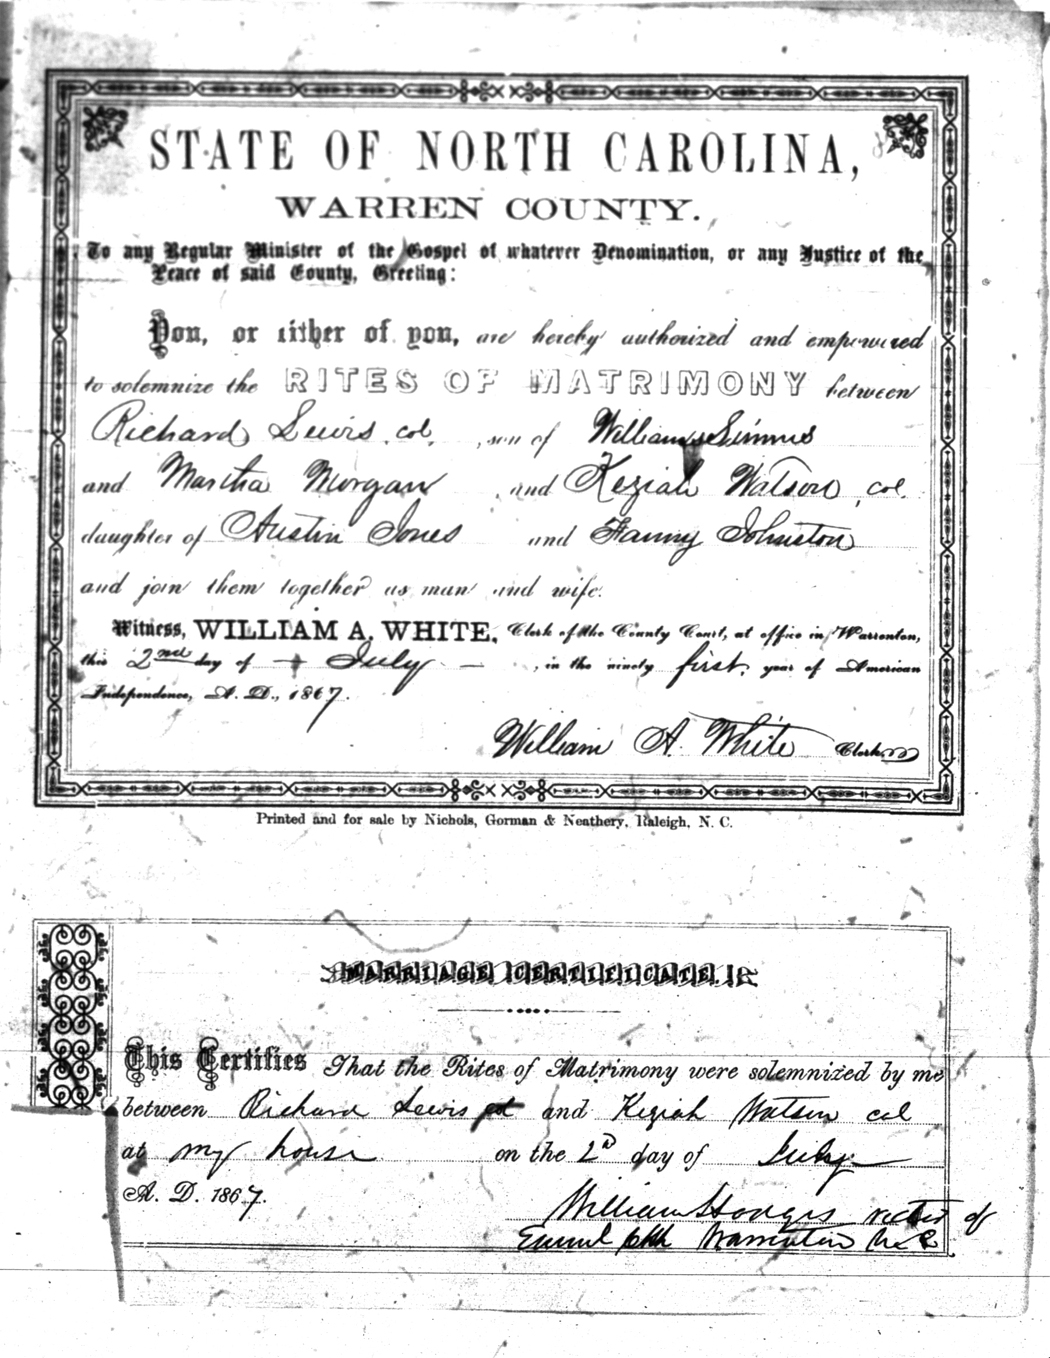 STATE OF NORTH CAROLINA,
WARREN COUNTY.
To any Regular Minister of the Gospel of whatever Denomination, or any Justice of the
Peace of said County, Greeting:
You, or either of you, are hereby authorized and empowered
to solemnize the RITES OF MATRIMONY between
Richard Lewis, col. , son of William Simms
and Martha Morgan , and Keziah Watson, col.
daughter of Austin Jones and Fanny Johnston
and join them together as man and wife.
Witness, WILLIAM A. WHITE, Clerk of the County Court, at office in Warrenton,
this 2nd day of July , in the ninety first, year of American
Independence, A. D., 1867.
William A. White Clerk
Printed and for sale by Nichols, Gorman & Neathery, Raleigh, N. C.
MARRIAGE CERTIFICATE.
This Certifies That the Rites of Matrimony were solemnized by me
between Richard Lewis col and Keziah Watson col
at my house on the 2d day of July
A. D. 1867.
William Hodges rector of
Emmanl Chh Warrenton N C